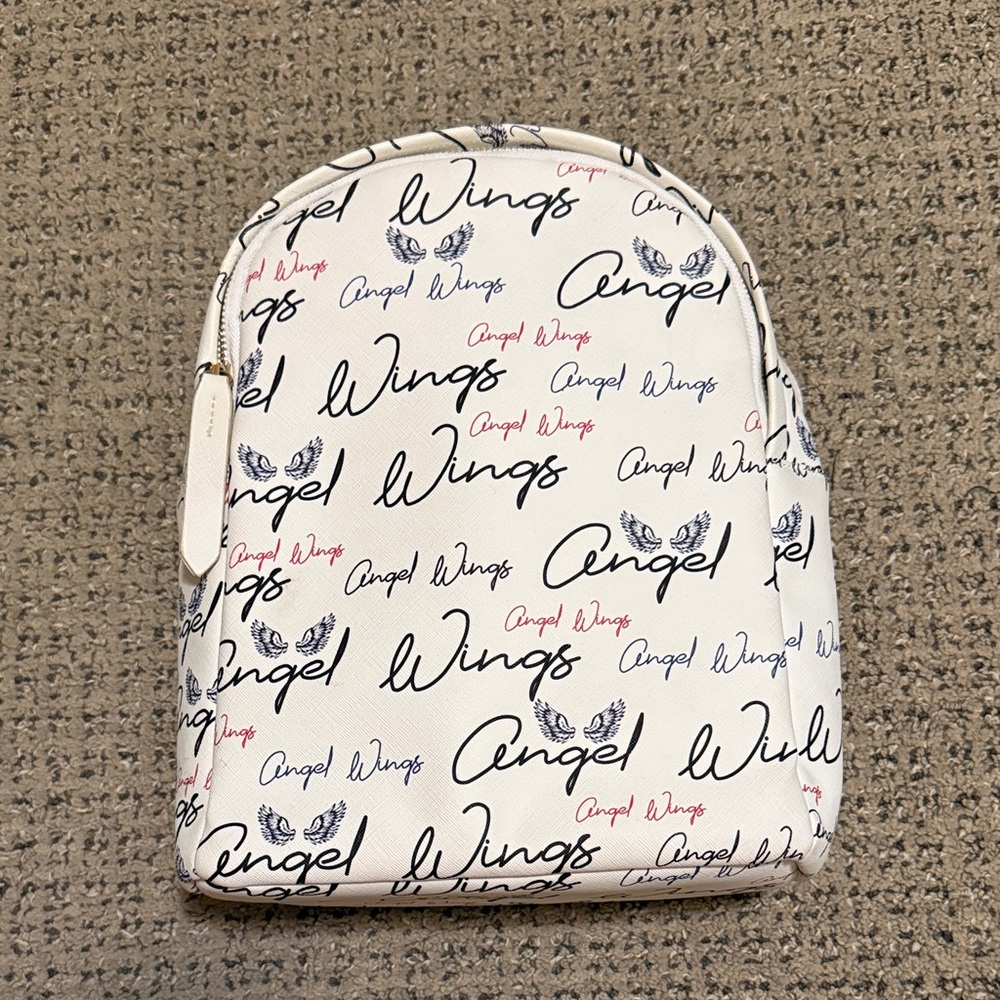 Angel
Angel Wings
Ang
Angel Wings
Angel Wings
Angel
ngs
Angel Wings
el Wings
Angel Wings
Angel Wings
Angel Wings
Angel Win
Angel Wings
Angel Wings
Angel
el
ngs
Angel Wings
gel
Angel Wings
Angel Wings
el Wi
ng
Wings
Angel Wings
Angel Win
Angel Wings
Angel Wings
Angel Win